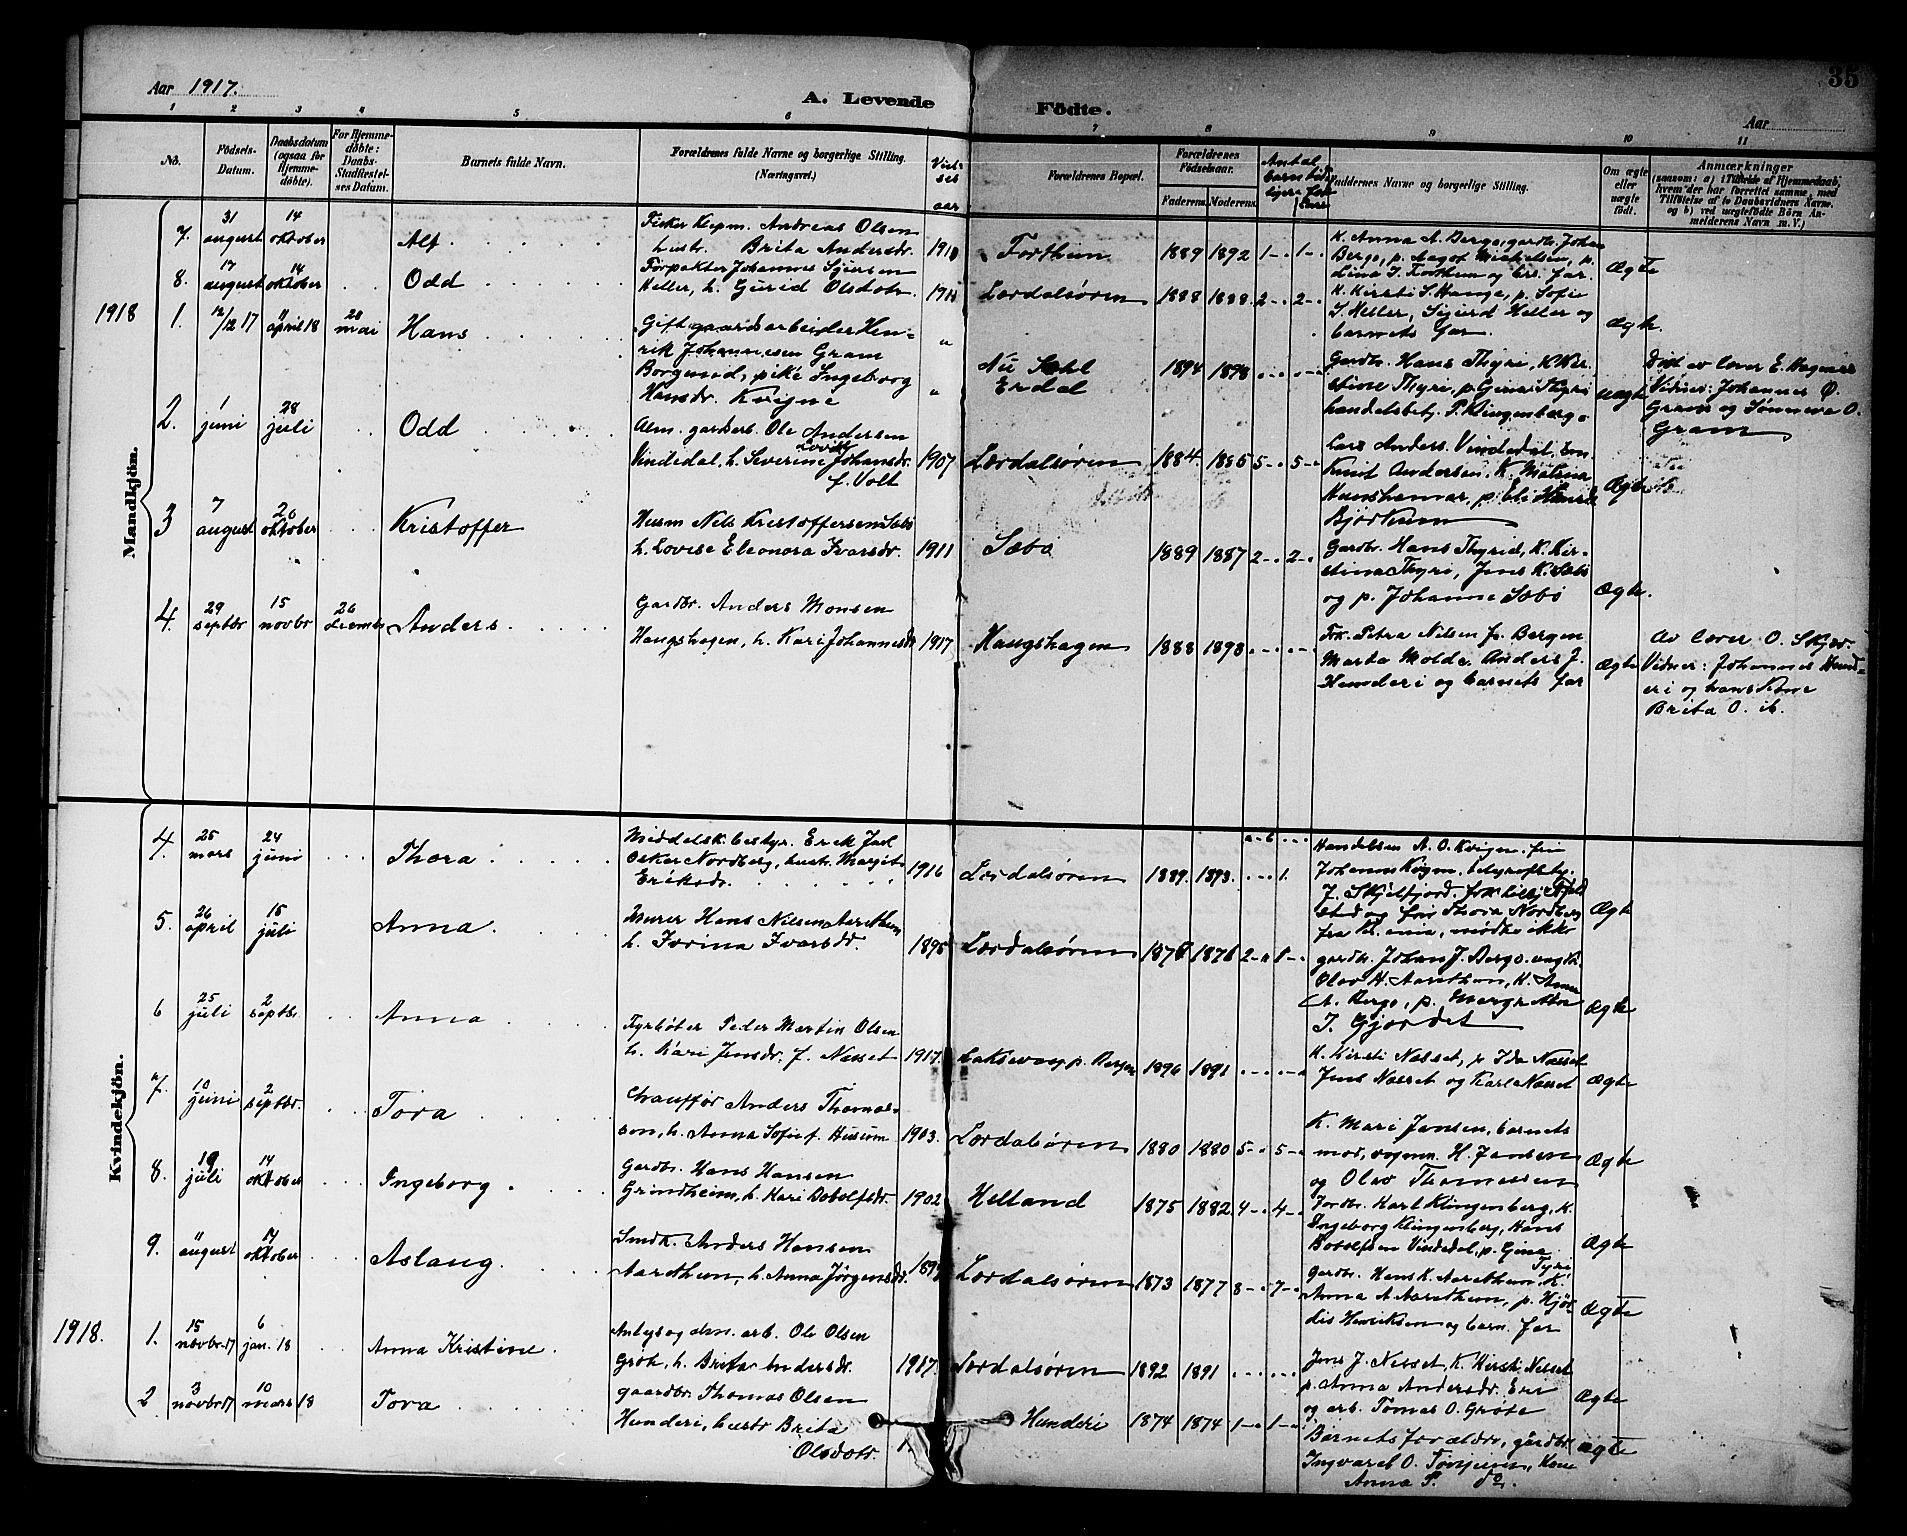 Aar 1917.
A. Levende
Födte.
Aar
35
1 2 3 4 5 6
7 8 9 10 11
No.
Födsels-
Datum.
Daabsdatum
(ogsaa for
Hjemme-
döbte).
For Hjemme-
döbte:
Daabs-
Stadfæstel-
ses Datum.
Barnets fulde Navn.
Forældrenes fulde Navne og borgerlige Stilling.
(Næringsvei.)
Viel-
ses
aar
Forældrenes Bopæl.
Forældrenes
Födselsaar.
Faderens. Moderens.
Antal
barn
Faddernes Navne og borgerlige Stilling.
Om ægte
eller
uægte
født.
Anmærkninger
(saasom: a) i Tilfælde af Hjemmedaab,
hvem der har forrettet samme, med
Tilföielse af to Daabsvidners Navne.
og b) ved uægtefödte Börn An-
melderens Navn m. V.)
Mandkjön.
7. 31 august 14 oktober Alf
Fisker Andreas Olsen
hustr. Brita Andersdr.
Forthun 1889 1892 1 1
K. Anna A. Bergo, gardbr. Johan
Bergo, p. Aagot Mikkelsen, p.
Lina I. Forthun og brs. far
Ægte
8. 17 august 14 oktober Odd
Forpakter Johannes Sjursen
Heller, h. Gurid Olsdotr.
Lærdalsøren 1888 1888 2 2
K. Kirsti S. Hauge, p. Sofie
S. Heller, Sigurd Heller og
barnets far.
Ægte.
1918 1. 12/12 17 11 april 18 28 mai Hans
Gift gaardsarbeider Hen-
rik Johannesen Gram
Borgund, pike Ingeborg
Hansdr. Kvigne
Erdal 1894 1878
Gardbr. Hans Thyri, K. Kir-
stine Thyri,
handelsbetj. P. Klingenberg
uægte
Døbt av lærer E. Hagnes
Vidner: Johannes O.
Gram og Sønneva O.
Gram
2. 1 juni 28 juli Odd
Alm. garderb. Ole Andersen
Vindedal, h. Severine Johansdr.
f. Volt 1907
Lærdalsøren 1884. 1885 5 5
Lars Anders. Vindedal,
Knut Andersen, K.
Bjørkum
Ægte
3 7 august 20 oktober Kristoffer
Husm Nils Kristoffersen Sæbø
h. Lovise Eleonora Ivarsdr. 1911
Sæbø 1889 1887 2 2
Gardbr. Hans Thyrid, K. Kir-
stina Thyri, Jens K. Sæbø
og p. Johanne Sæbø
Ægte.
4. 29 septbr 15 novbr 26 Anders
Gardbr. Anders Monsen
Haugshagen, h. Kari Johannesdr 1917
Haugshagen 1888 1898
Frk. Petra Nilsen fr. Bergen
Marta Molde, Anders J.
Hunderi og barnets far
Ægte
Av lærer O. Skjær.
Vidner: Johannes Hund-
eri og hans kone
Brita O. ib.
Kvindekjön.
4. 25 mars 24 juni Thora
Middelsk.bestyr. Erik Jul
Oskar Nordberg, hustr. Margit
Eriksdr. 1916
Lærdalsøren 1889. 1893. 1.
Handelsm A. O. Kvigne, fru
J. Skjelfjord,
og fru Thora Nordberg
fra Kr.ania, mødte ikke
Ægte
5. 26 april 15 juli Anna
Murer Hans Nilsen Aarethun
h. Jorina Ivarsdr. 1895
Lærdalsøren 1876 2
gardbr. Johan J. Bergo, ungk.
Olav H. Aarethun, K. Anna
A. Bergo, p. Margreta
I. Gjærdet
Ægte
6 25 juli 2 septbr. Anna
Fyrbøter Peder Martin Olsen
h. Kari Jensdr. f. Næsset 1917.
Laksevaag p. Bergen 1896 1891
K. Kirsti Næsset, p Ida Næsset
Jens Næsset og Karl Næsset
Ægte
7. 10 juni 2 septbr. Tora
Chauffør Anders Thomas-
sen, h. Anna Sofie f. Husum 1903.
Lærdalsøren 1880 1880 5 5
K. Mari Jansen, barnets
mor, vognm. H. Jansen
og Olav Thomassen
Ægte
8. 19 juli 14 oktober Ingeborg
Gardbr. Hans Hansen
Grindheim, h. Kari Botolfsdr. 1902
Helland 1875 1882 4 4
Jordbr. Karl Klingenberg, K.
Ingeborg Klingenberg, Hans
Botolfsen Vindedal, p. Gina
Tyri
Ægte
9. 11 august 14 oktober Aslaug
Smdk. Anders Hansen
Aarethun, h. Anna Jørgensdr.
Lærdalsøren 1873 1877 8 7
gardbr. Hans K. Aarethun, K.
Anna A Aarethun, p. Hjør
dis Henriksen og barn. far
Ægte
1918. 1. 15 novbr. 17 6 jan. 18 Anna Kristine
Anlegs og alm. arb. Ole Olsen
Grøte, h. Brita Andersdr. 1917.
Lærdalsøren 1892 1891
Jens J. Nesset, K. Kirsti Nesset
p. Anna Andersdr. Eri
og arb. Tomas O. Grøte
Ægte
2 3 novbr 17 10 mars 18 Tora
gaardbr. Thomas Olsen
Hunderi, hustr Brita
Olsdotr.
Hunderi 1874 1874 1 1
Barnets forældre, gårdbr.
Ingvard O. Tønjum, Kone
Anna P. do.
ægte